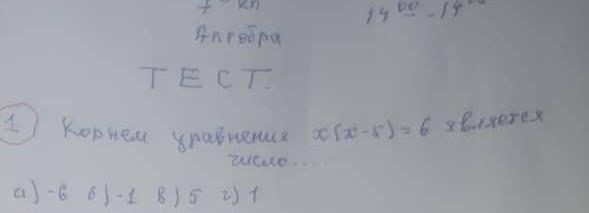 7 кл
14 00 - 14
Алгебра
ТЕСТ.
1 Корнем уравнения x(x-5)=6 является
число....
а) -6 б) -1 в) 5 г) 1